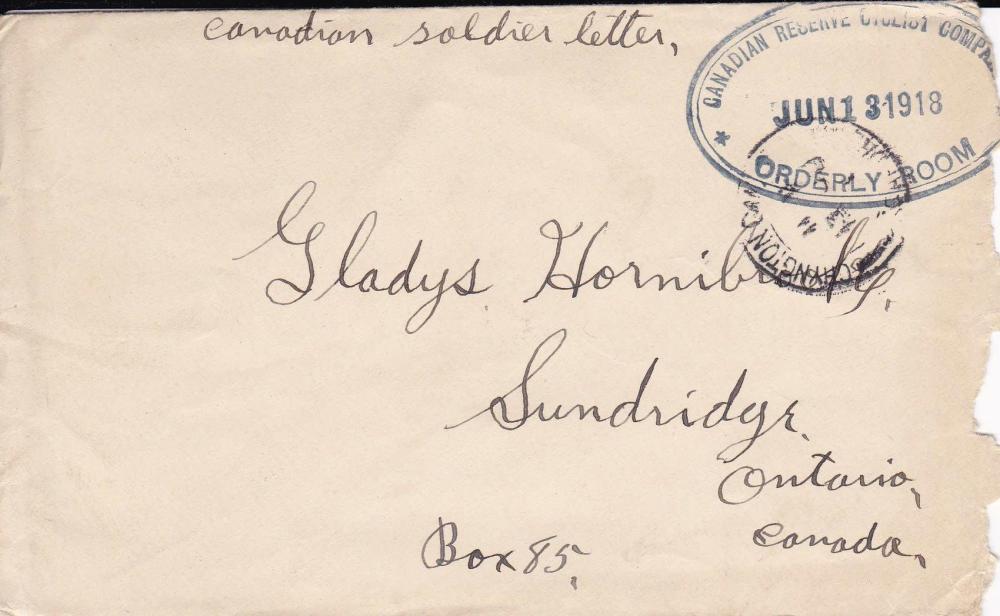 canadian soldier letter,
CANADIAN RESERVE CYCLIST COMPA
JUN 13 1918
ORDERLY ROOM
Gladys.
Sundridge.
Ontario,
Canada,
Box 85,